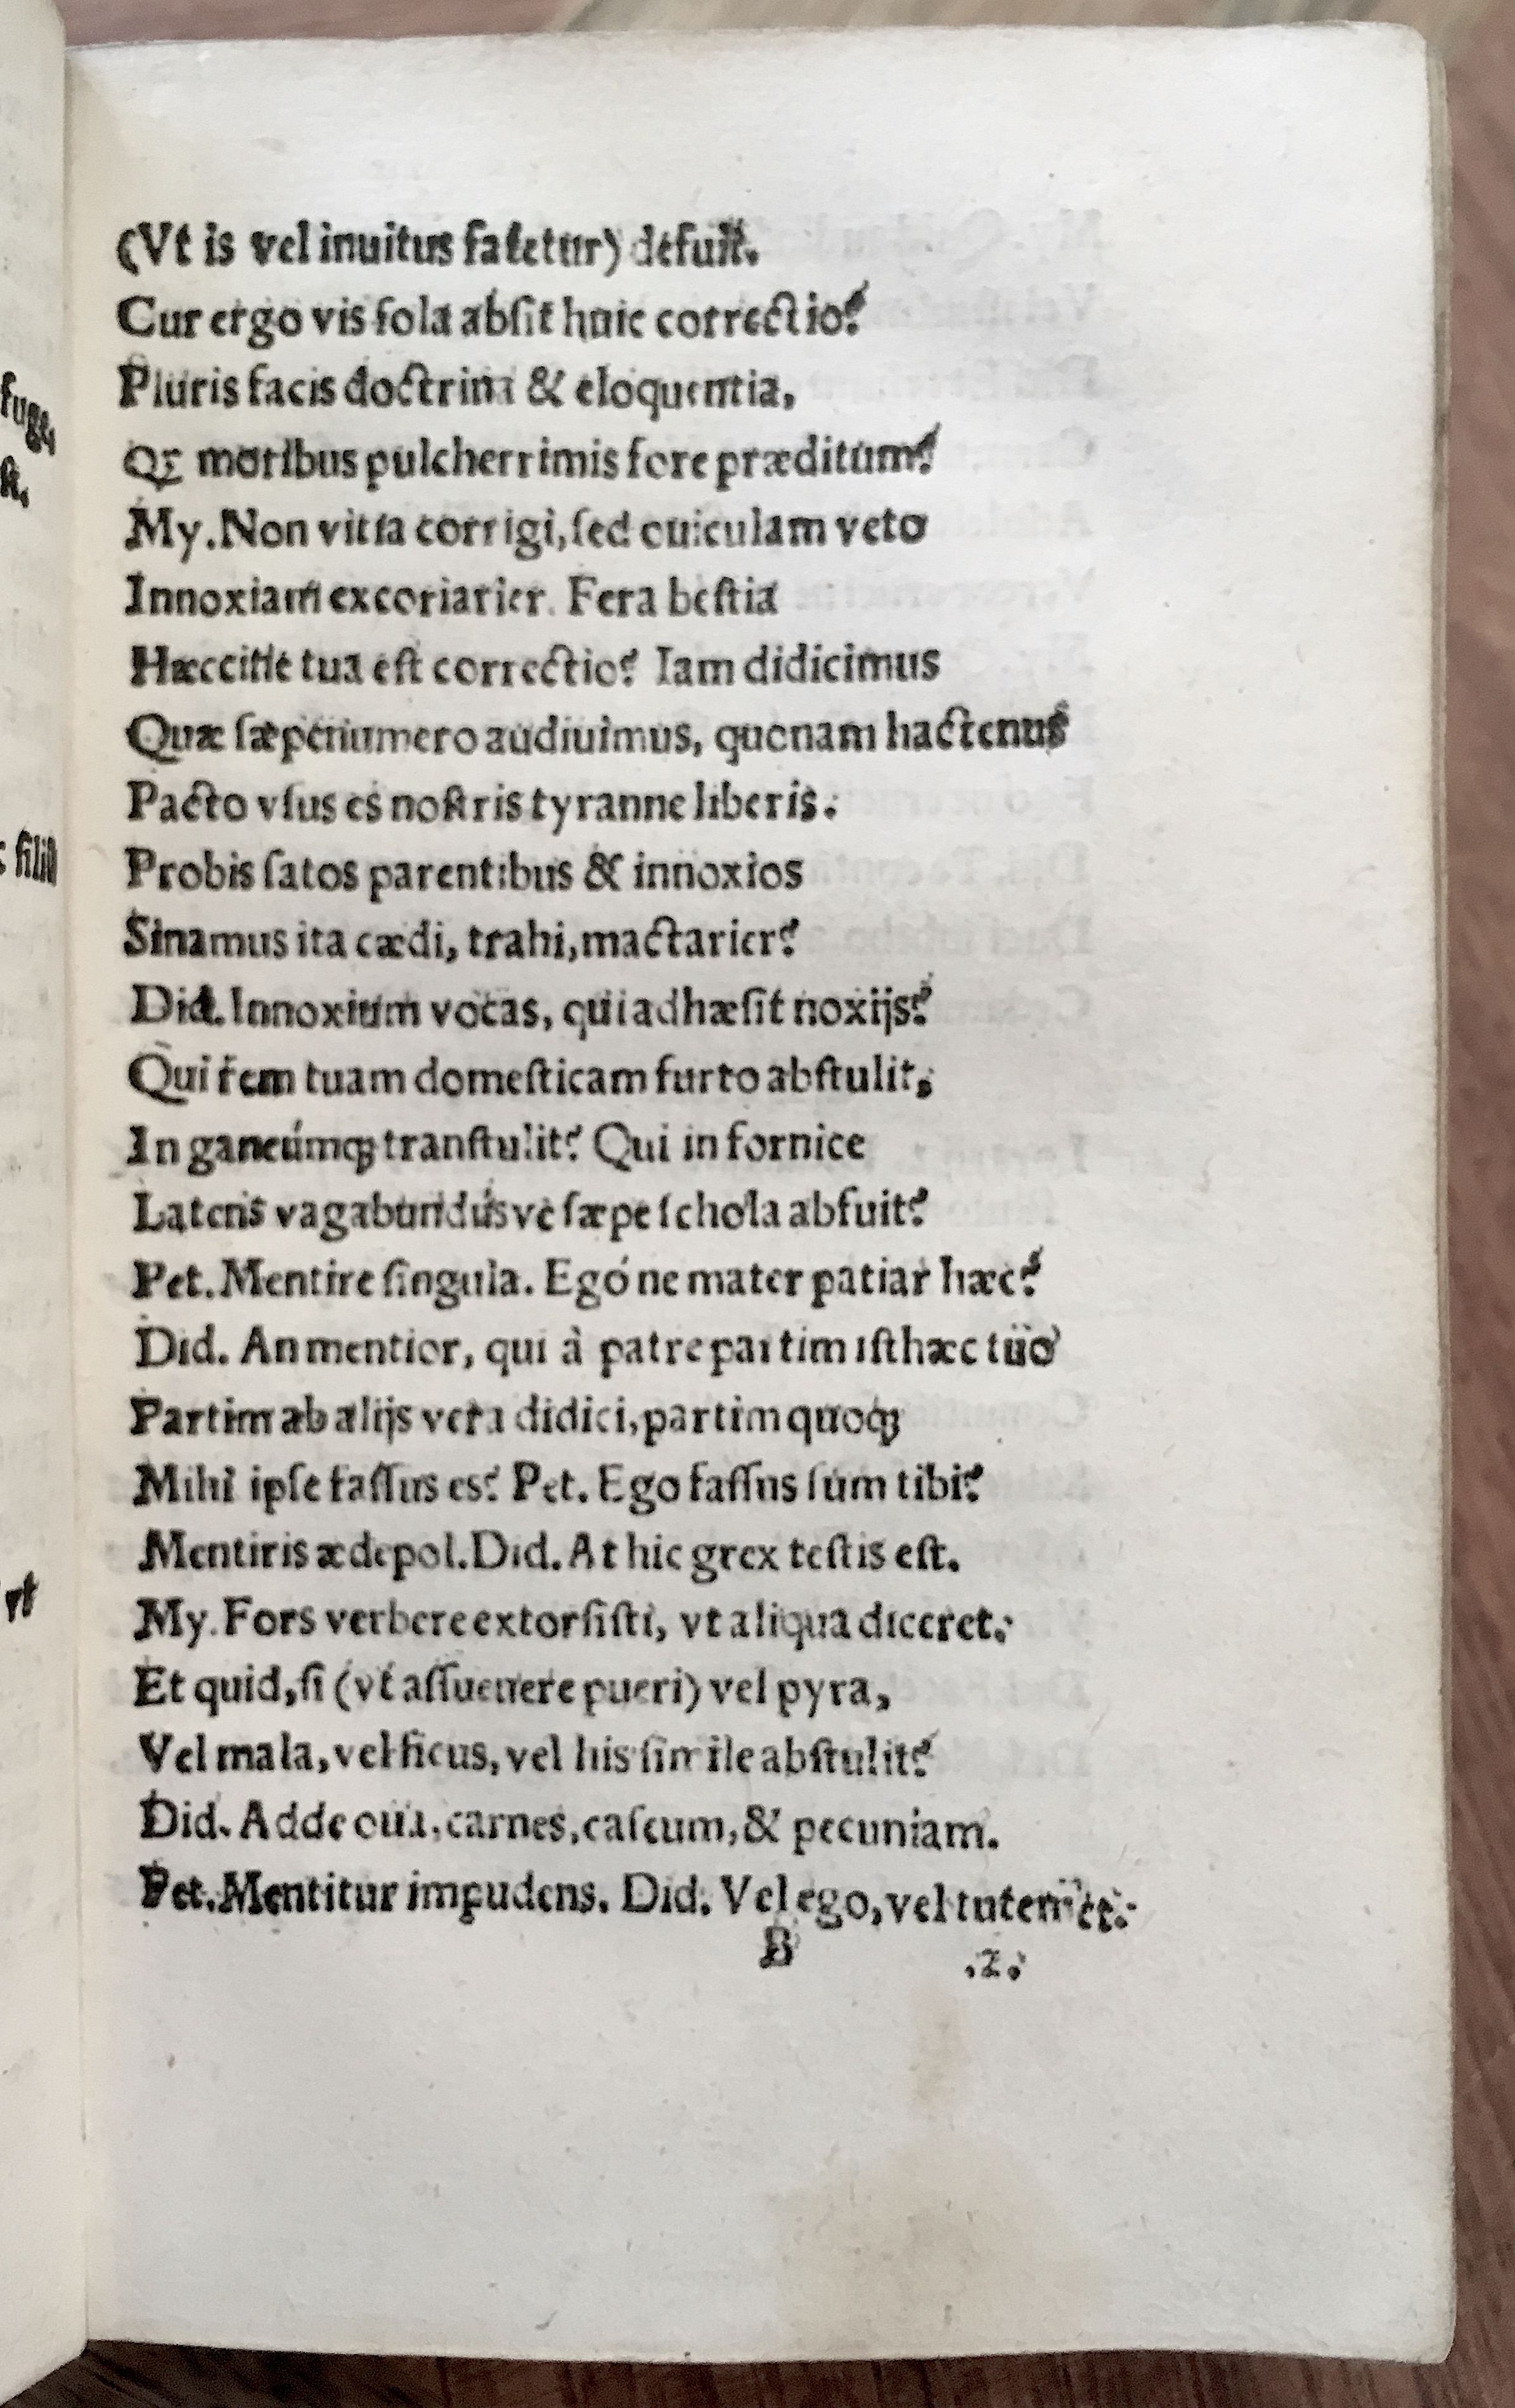 (Vt is vel inuitus fatetur) defuit.
Cur ergo vis sola absit huic correctio?
Pluris facis doctrina & eloquentia,
Qꝫ moribus pulcherrimis fore præditum?
My. Non vitia corrigi, sed cuiculam veto
Innoxiam excoriarier. Fera bestia
Hæccine tua est correctio? Iam didicimus
Quæ sæpenumero audiuimus, quonam hactenus
Pacto vsus es nostris tyranne liberis.
Probis satos parentibus & innoxios
Sinamus ita cædi, trahi, mactarier?
Did. Innoxium vocas, qui adhæsit noxijs?
Qui rem tuam domesticam furto abstulit,
In ganeúmqꝫ transtulit? Qui in fornice
Latens vagabundúsve sæpe schola abfuit?
Pet. Mentire singula. Egóne mater patiar hæc?
Did. An mentior, qui à patre partim isthæc tuo
Partim ab alijs vera didici, partim quoqꝫ
Mihi ipse fassus es? Pet. Ego fassus sum tibi?
Mentiris ædepol. Did. At hic grex testis est.
My. Fors verbere extorsisti, vt aliqua diceret.
Et quid, si (vt assueuere pueri) vel pyra,
Vel mala, vel ficus, vel his simile abstulit?
Did. Adde oua, carnes, caseum, & pecuniam.
Pet. Mentitur impudens. Did. Vel ego, vel tutemet.
B .2.
fuge,
st.
filiū
vt